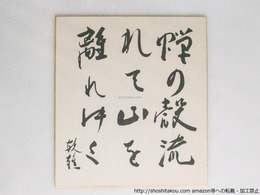 蟬の殻流
れて山を
離れゆく
敏雄
http://shoshitakou.com amazon等への転載・加工禁止